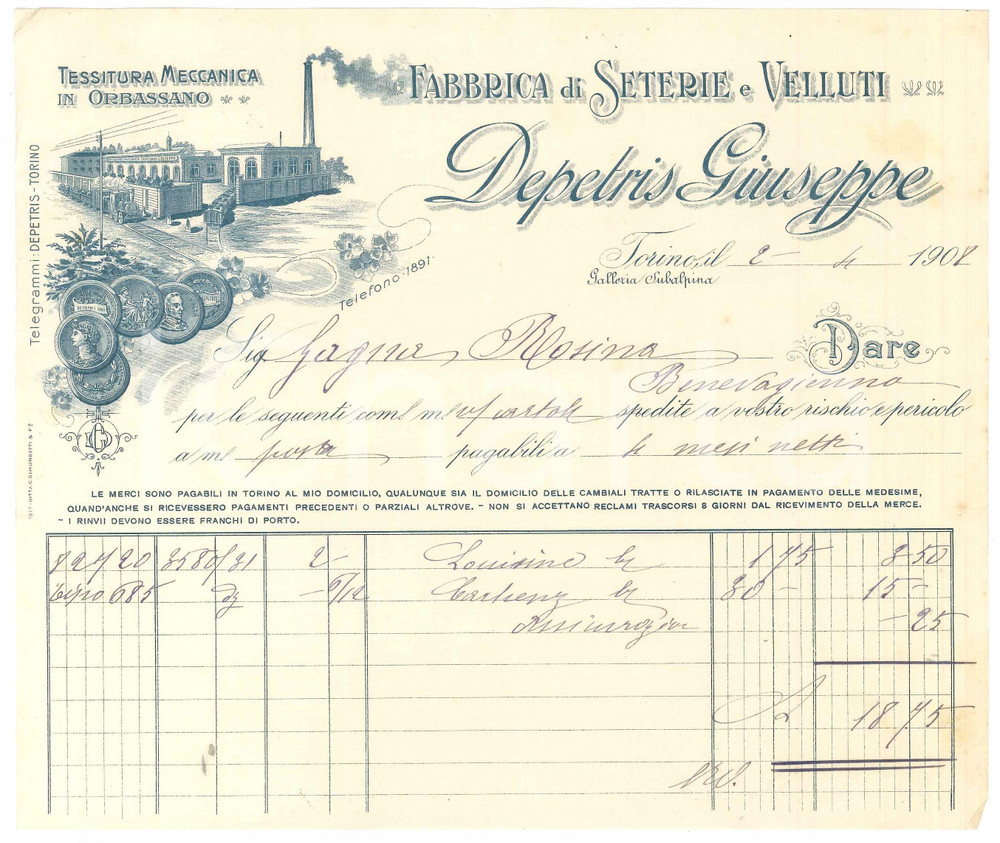 TESSITURA MECCANICA
IN ORBASSANO
FABBRICA di SETERIE e VELLUTI
Depetris Giuseppe
Telegrammi: DEPETRIS-TORINO
Telefono-1891
Torino, il 2 - 4 1908
Galleria Subalpina
Sig Rosina
Dare
Benevagienna
per le seguenti spedite a vostro rischio e pericolo
a m/ porto pagabili a 4 mesi netti
LE MERCI SONO PAGABILI IN TORINO AL MIO DOMICILIO, QUALUNQUE SIA IL DOMICILIO DELLE CAMBIALI TRATTE O RILASCIATE IN PAGAMENTO DELLE MEDESIME,
QUAND'ANCHE SI RICEVESSERO PAGAMENTI PRECEDENTI O PARZIALI ALTROVE. - NON SI ACCETTANO RECLAMI TRASCORSI 8 GIORNI DAL RICEVIMENTO DELLA MERCE.
- I RINVII DEVONO ESSERE FRANCHI DI PORTO.
82420 3580/31 2- Louisine 1 75 3 50
Tipo 685 - 6/12 30 - 15 -
Assicurazion - 25
18 75